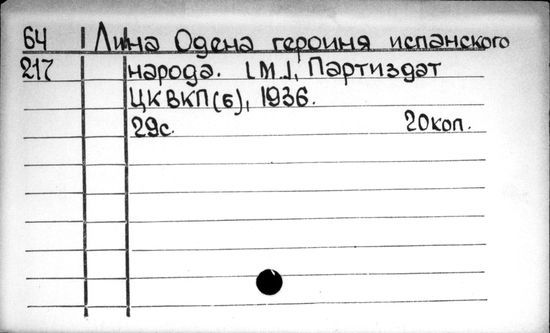 64 Лина Одена героиня испанского
217 народа. [М.], Партиздат
ЦК ВКП(б), 1936.
29с. 20коп.